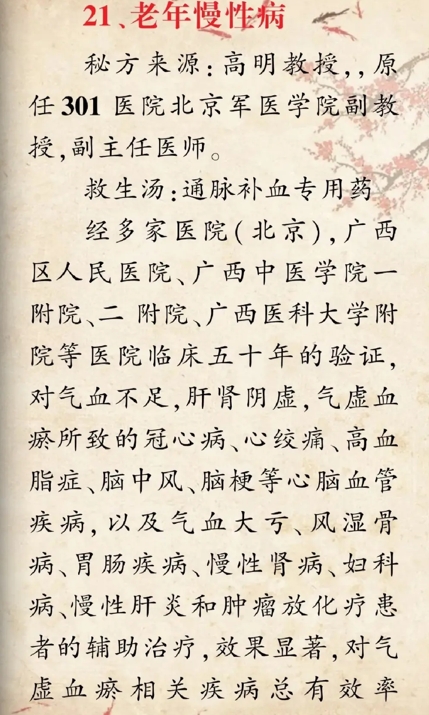 21、老年慢性病
秘方来源:高明教授,,原
任301医院北京军医学院副教
授,副主任医师。
救生汤:通脉补血专用药
经多家医院(北京),广西
区人民医院、广西中医学院一
附院、二 附院、广西医科大学附
院等医院临床五十年的验证,
对气血不足,肝肾阴虚,气虚血
瘀所致的冠心病、心绞痛、高血
脂症、脑中风、脑梗等心脑血管
疾病,以及气血大亏、风湿骨
病、胃肠疾病、慢性肾病、妇科
病、慢性肝炎和肿瘤放化疗患
者的辅助治疗,效果显著,对气
虚血瘀相关疾病总有效率